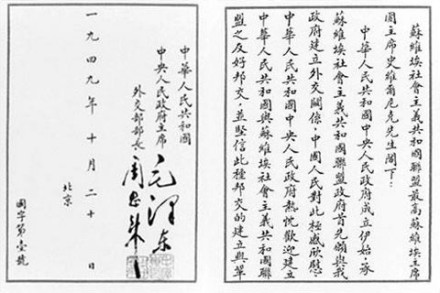 蘇維埃社會主義共和國聯盟最高蘇維埃主席
團主席史維爾尼克先生閣下：
中華人民共和國中央人民政府成立伊始，承
蘇維埃社會主義共和國聯盟政府首先願與我
政府建立外交關係，中國人民對此極感欣慰
中華人民共和國中央人民政府熱忱歡迎建立
中華人民共和國與蘇維埃社會主義共和國聯
盟之友好邦交，並堅信此種邦交的建立與鞏
中華人民共和國
中央人民政府主席 毛澤東
外交部部長 周恩來
一九四九年十月二十日
北京
國字第壹號